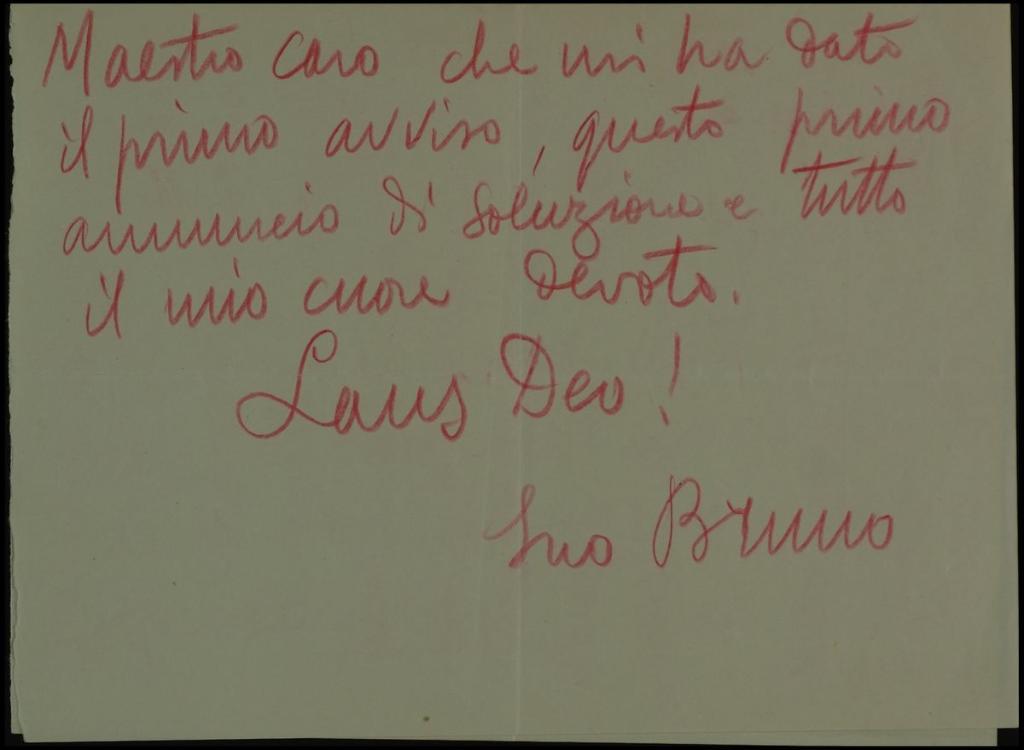 Maestro caro che mi ha dato
il primo avviso, questo primo
annuncio di soluzione e tutto
il mio cuore devoto.
Laus Deo!
Suo Bruno